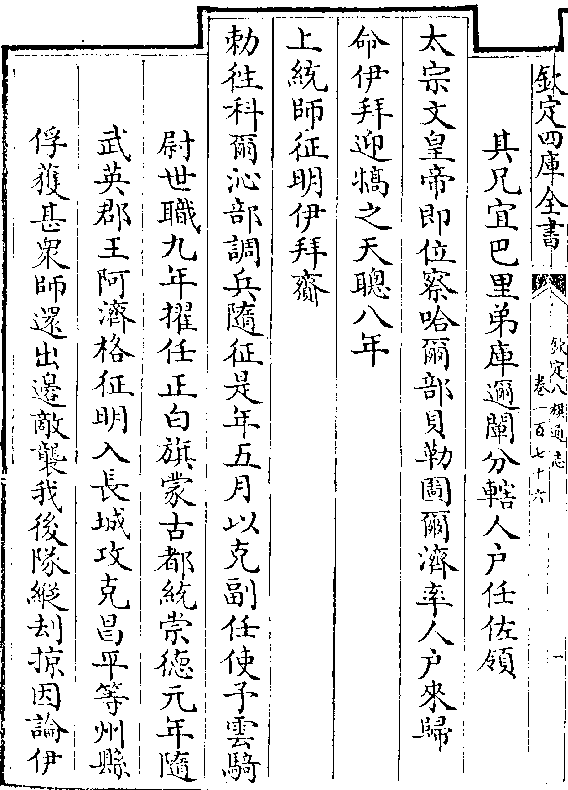 欽定四庫全書
欽定八旗通志
卷一百七十六
一
其兄宜巴里弟庫邇闡分轄人户任佐領
太宗文皇帝即位察哈爾部貝勒圖爾濟率人户來歸
命伊拜迎犒之天聰八年
上統師征明伊拜齎
勅徃科爾沁部調兵隨征是年五月以克副任使予雲騎
尉世職九年擢任正白旗蒙古都統崇德元年隨
武英郡王阿濟格征明入長城攻克昌平等州縣
俘獲甚衆師還出邊敵襲我後隊縱刦掠因論伊